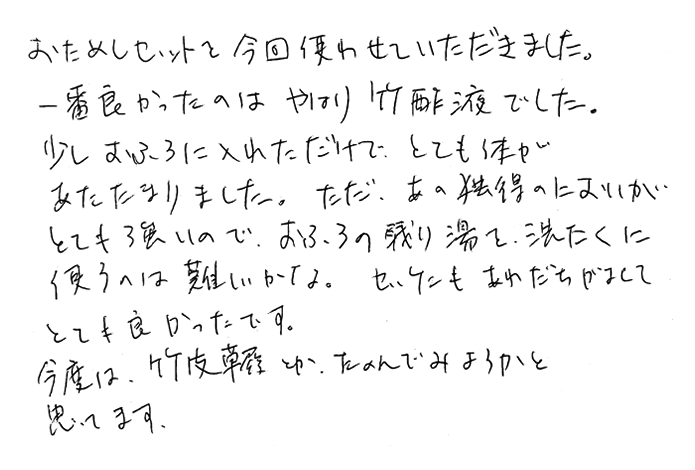 おためしセットを今回使わせていただきました。
一番良かったのは やはり 竹酢液でした。
少しおふろに入れただけで、とても体が
あたたまりました。ただ、あの独得のにおいが
とても強いので、おふろの残り湯を、洗たくに
使うのは難しいかな。セッケンもあわだちがよくて
とても良かったです。
今度は、竹皮草履とか、たのんでみようかと
思ってます。